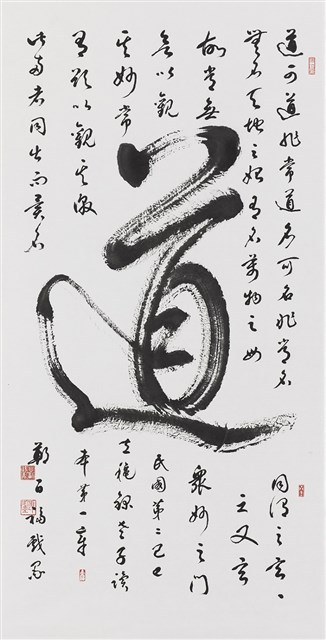 道可道非常道名可名非常名
無名天地之始有名萬物之母
故常無
欲以觀
其妙常
有欲以觀其徼
此兩者同出而異名
道
同謂之玄〻
之又玄
眾妙之門
民國第二
立秋錄老子讀
本第一章
鄭百福戲墨